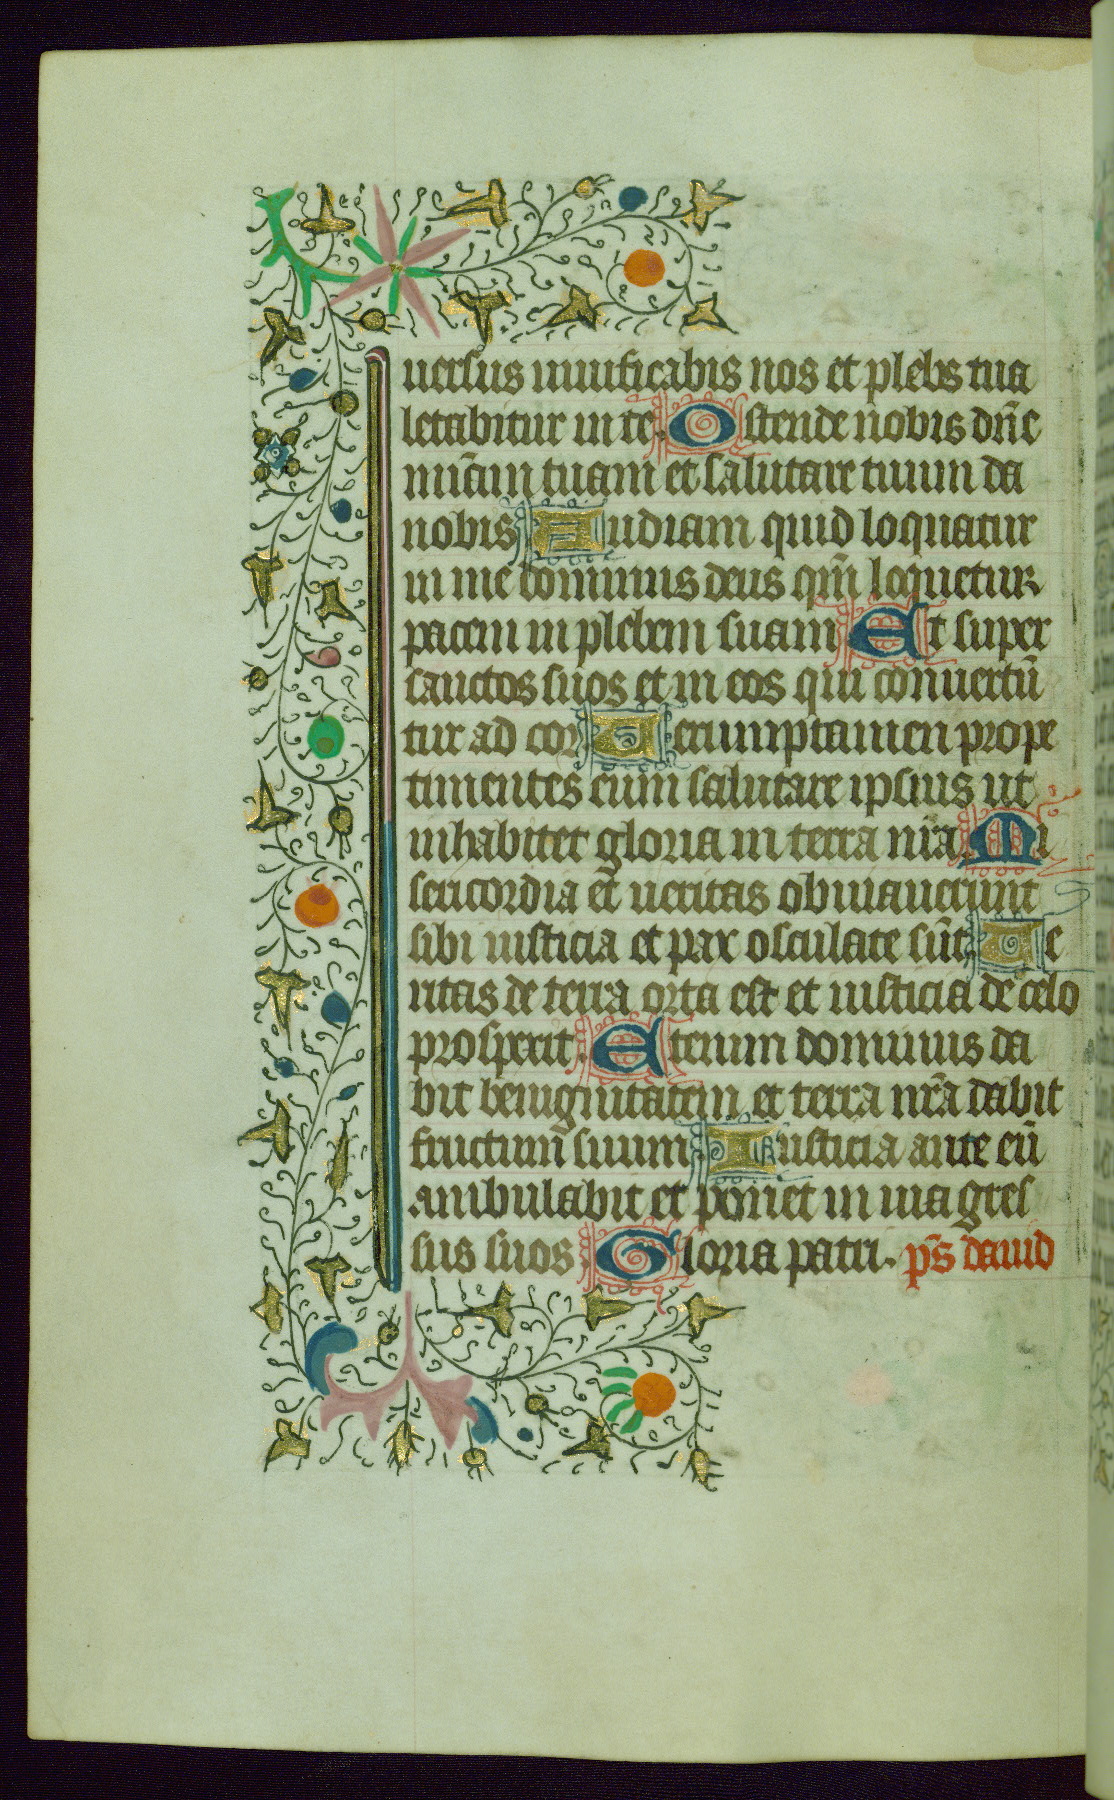 uersus uiuificabis nos et plebs tua
letabitur in te. Ostende nobis dn̄e
mīam tuam et salutare tuum da
nobis Audiam quid loquatur
in me dominus deus qm̄ loquetur
pacem in plebem suam Et super
sanctos suos et in eos qui conuertū
tur ad cor Uerumptamen prope
timentes eum salutare ipsius ut
inhabitet gloria in terra nr̄a Mi
sericordia et ueritas obuiauerunt
sibi iusticia et pax osculate sūt Ue
ritas de terra orta est et iusticia de celo
prospexit. Etenim dominus da
bit benignitatem et terra nr̄a dabit
fructum suum Iusticia ante eū
ambulabit et ponet in uia gres
sus suos Gloria patri. ps̄ dauid